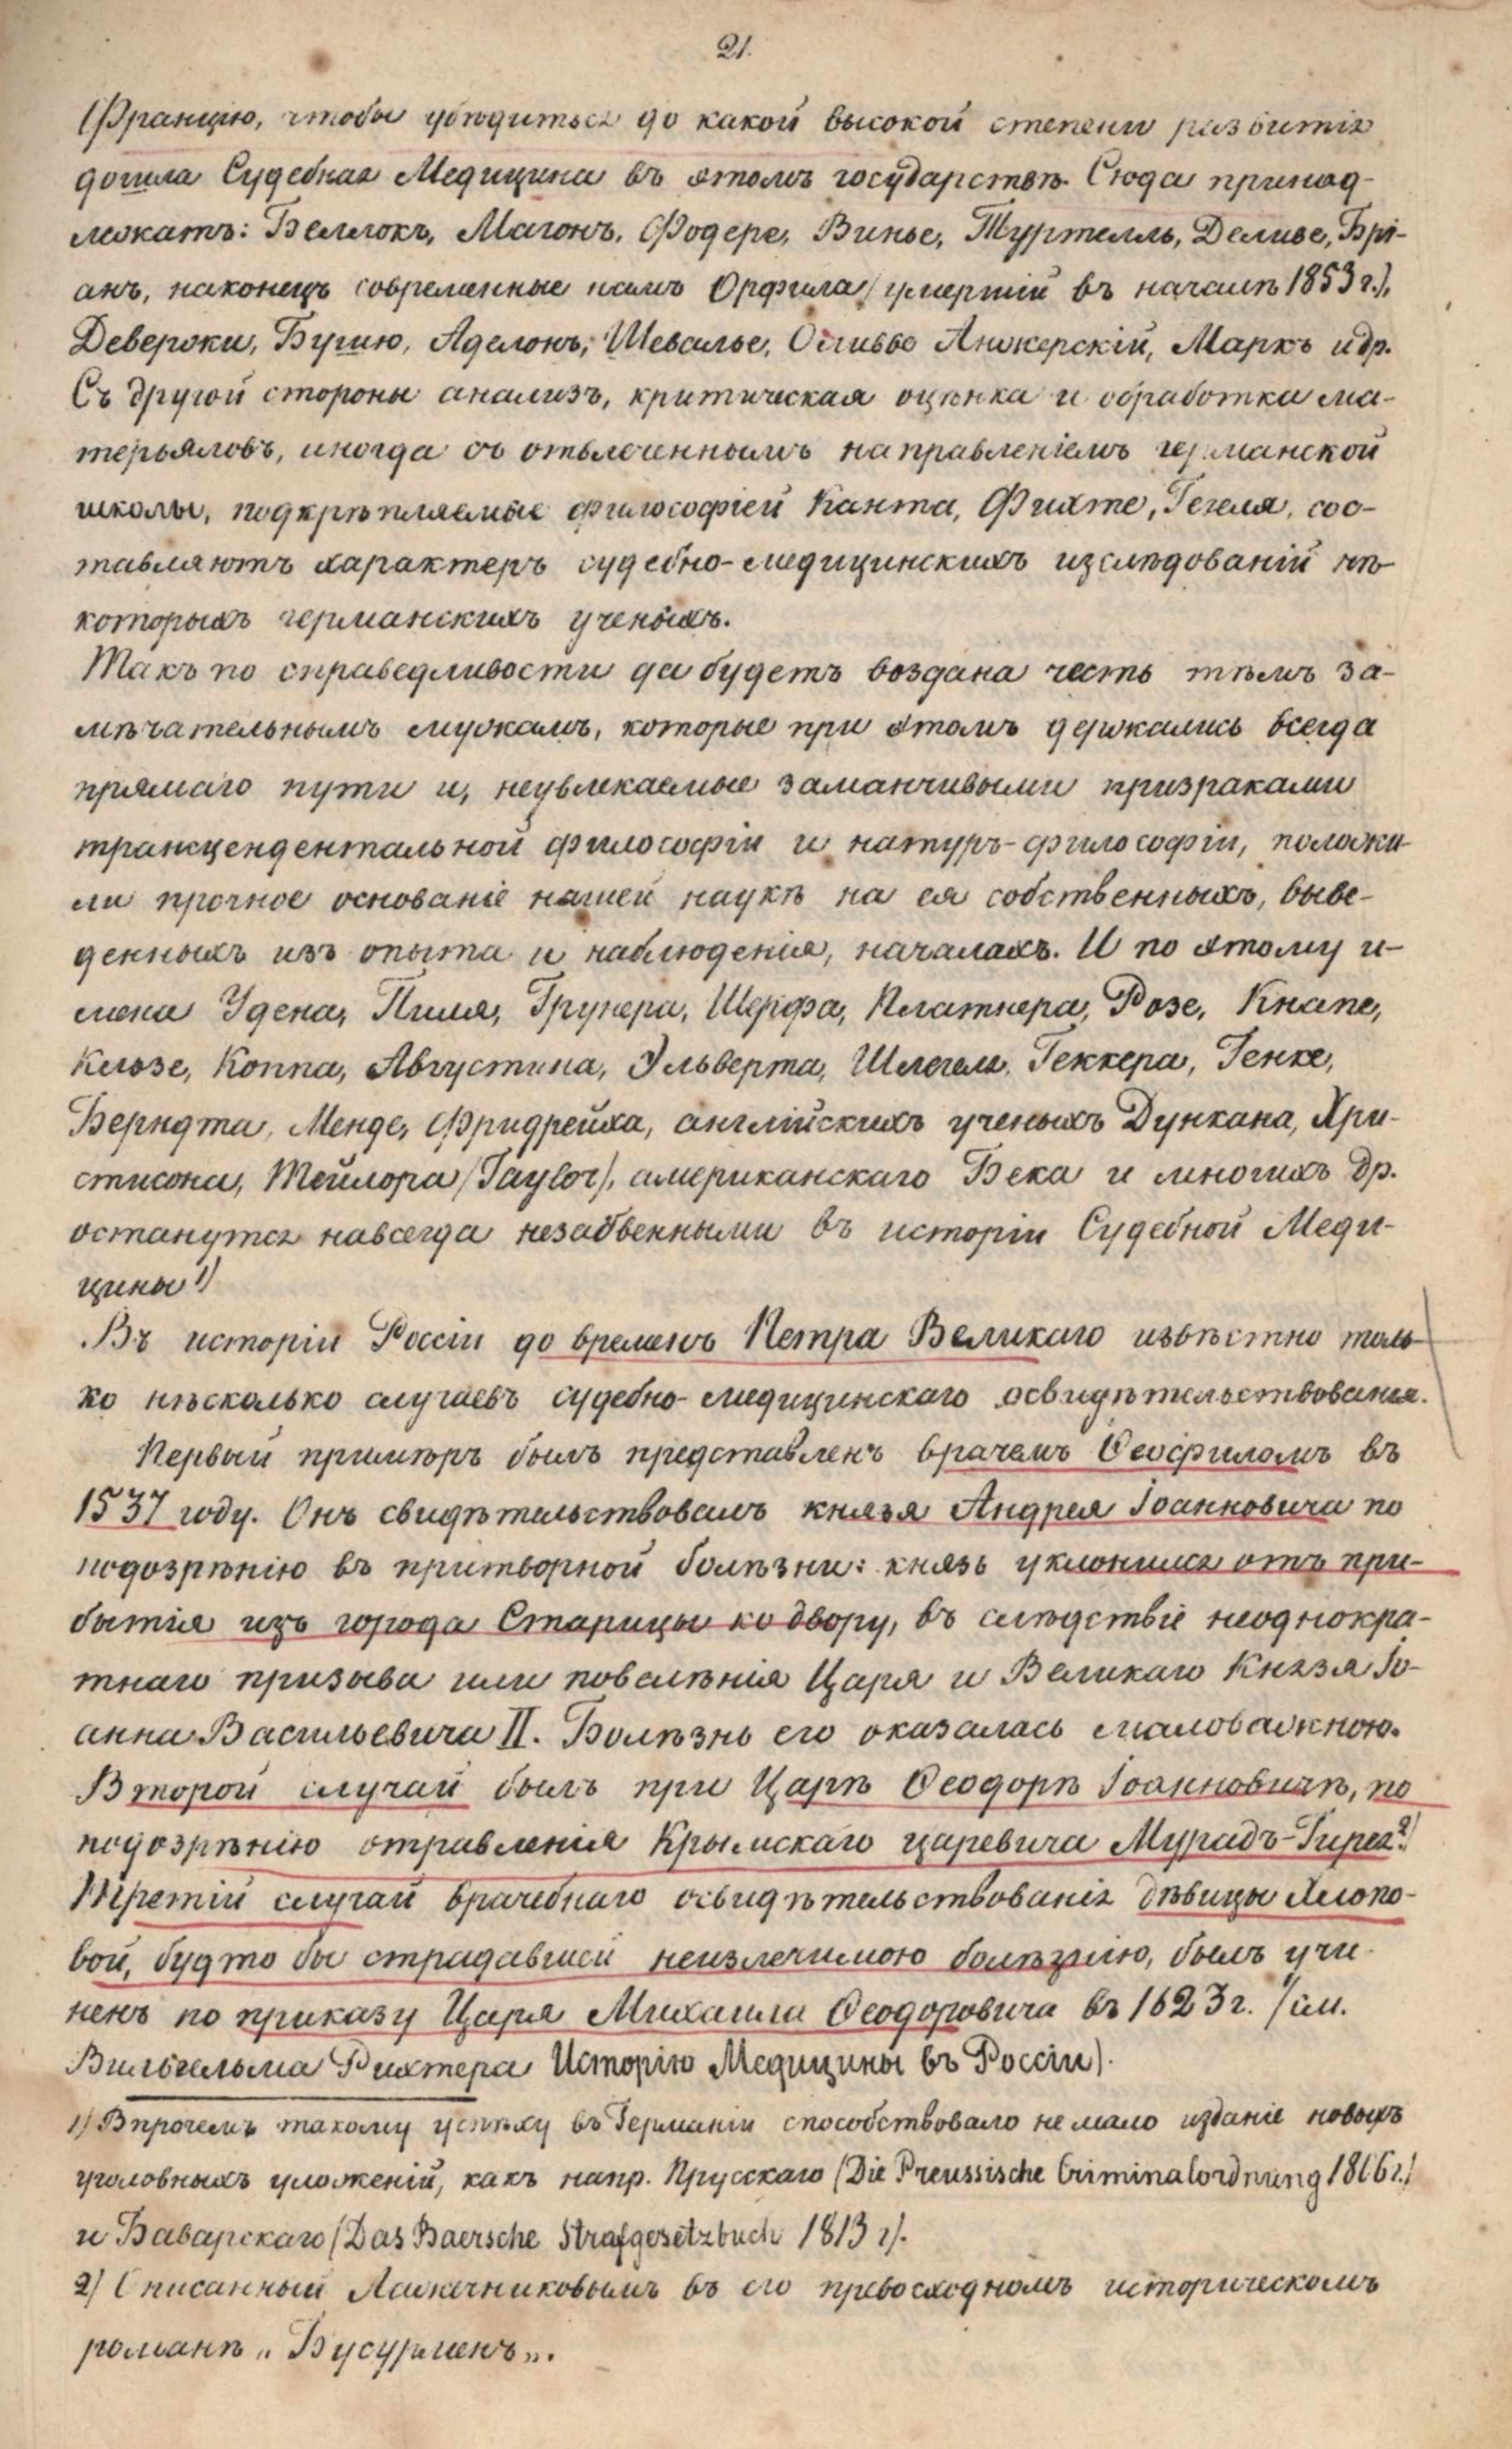 21.
Францію, чтобы убѣдиться до какой высокой степени развитія
дошла Судебная Медицина въ этомъ государствѣ. Сюда принад-
лежатъ: Беллокъ, Магонъ, Фодере, Винье, Туртелль, Деливе, Брі-
анъ, наконецъ современные намъ Орфила (умершій въ началѣ 1853 г.),
Девержи, Бушю, Аделонъ, Шевалье, Оливье Анжерскій, Маркъ и др.
Съ другой стороны анализъ, критическая оцѣнка и обработка ма-
терьяловъ, иногда съ отвлеченнымъ направленіемъ германской
школы, подкрѣпляемые философіей Канта, Фихте, Гегеля, сос-
тавляютъ характеръ судебно-медицинскихъ изслѣдованій нѣ-
которыхъ германскихъ ученыхъ.
Такъ по справедливости да будетъ воздана честь тѣмъ за-
мѣчательнымъ мужамъ, которые при этомъ держались всегда
прямаго пути и, неувлекаемые заманчивыми призраками
трансцендентальной философіи и натуръ-философіи, положи-
ли прочное основаніе нашей наукѣ на ея собственныхъ, выве-
денныхъ изъ опыта и наблюденія, началахъ. И по этому и-
мена Удена, Пиля, Грунера, Шерфа, Платнера, Розе, Кнапе,
Клозе, Коппа, Августина, Эльверта, Шлегеля, Геккера, Генке,
Берндта, Менде, Фридрейха, англійскихъ ученыхъ Дункана, Хри-
стисона, Тейлора (Taylor), американскаго Бека и многихъ др.
останутся навсегда незабвенными въ исторіи Судебной Меди-
цины 1)
Въ исторіи Россіи до временъ Петра Великаго извѣстно толь-
ко нѣсколько случаевъ судебно-медицинскаго освидѣтельствованія.
Первый примѣръ былъ представленъ врачемъ Ѳеофиломъ въ
1537 году. Онъ свидѣтельствовалъ князя Андрея Іоанновича по
подозрѣнію въ притворной болѣзни: князь уклонился отъ при-
бытія изъ города Старицы ко двору, въ слѣдствіе неоднокра-
тнаго призыва или повелѣнія Царя и Великаго Князя Іо-
анна Васильевича II. Болѣзнь его оказалась маловажною.
Второй случай былъ при Царѣ Ѳеодорѣ Іоанновичѣ, по
подозрѣнію отравленія Крымскаго царевича Мурадъ-Гирея 2)
Третій случай врачебнаго освидѣтельствованія дѣвицы Хлопо-
вой, будто бы страдавшей неизлечимою болѣзнію, былъ учи-
ненъ по приказу Царя Михаила Ѳеодоровича въ 1623 г. (см.
Вильгельма Рихтера Исторію Медицины въ Россіи).
1) Впрочемъ такому успѣху въ Германіи способствовало не мало изданіе новыхъ
уголовныхъ уложеній, какъ напр. Прусскаго (Die Preussische Criminalordnung 1806 г.)
и Баварскаго (Das Baersche Strafgesetzbuch 1813 г).
2) Описанный Лажечниковымъ въ его превосходномъ историческомъ
романѣ „Бусурменъ„.